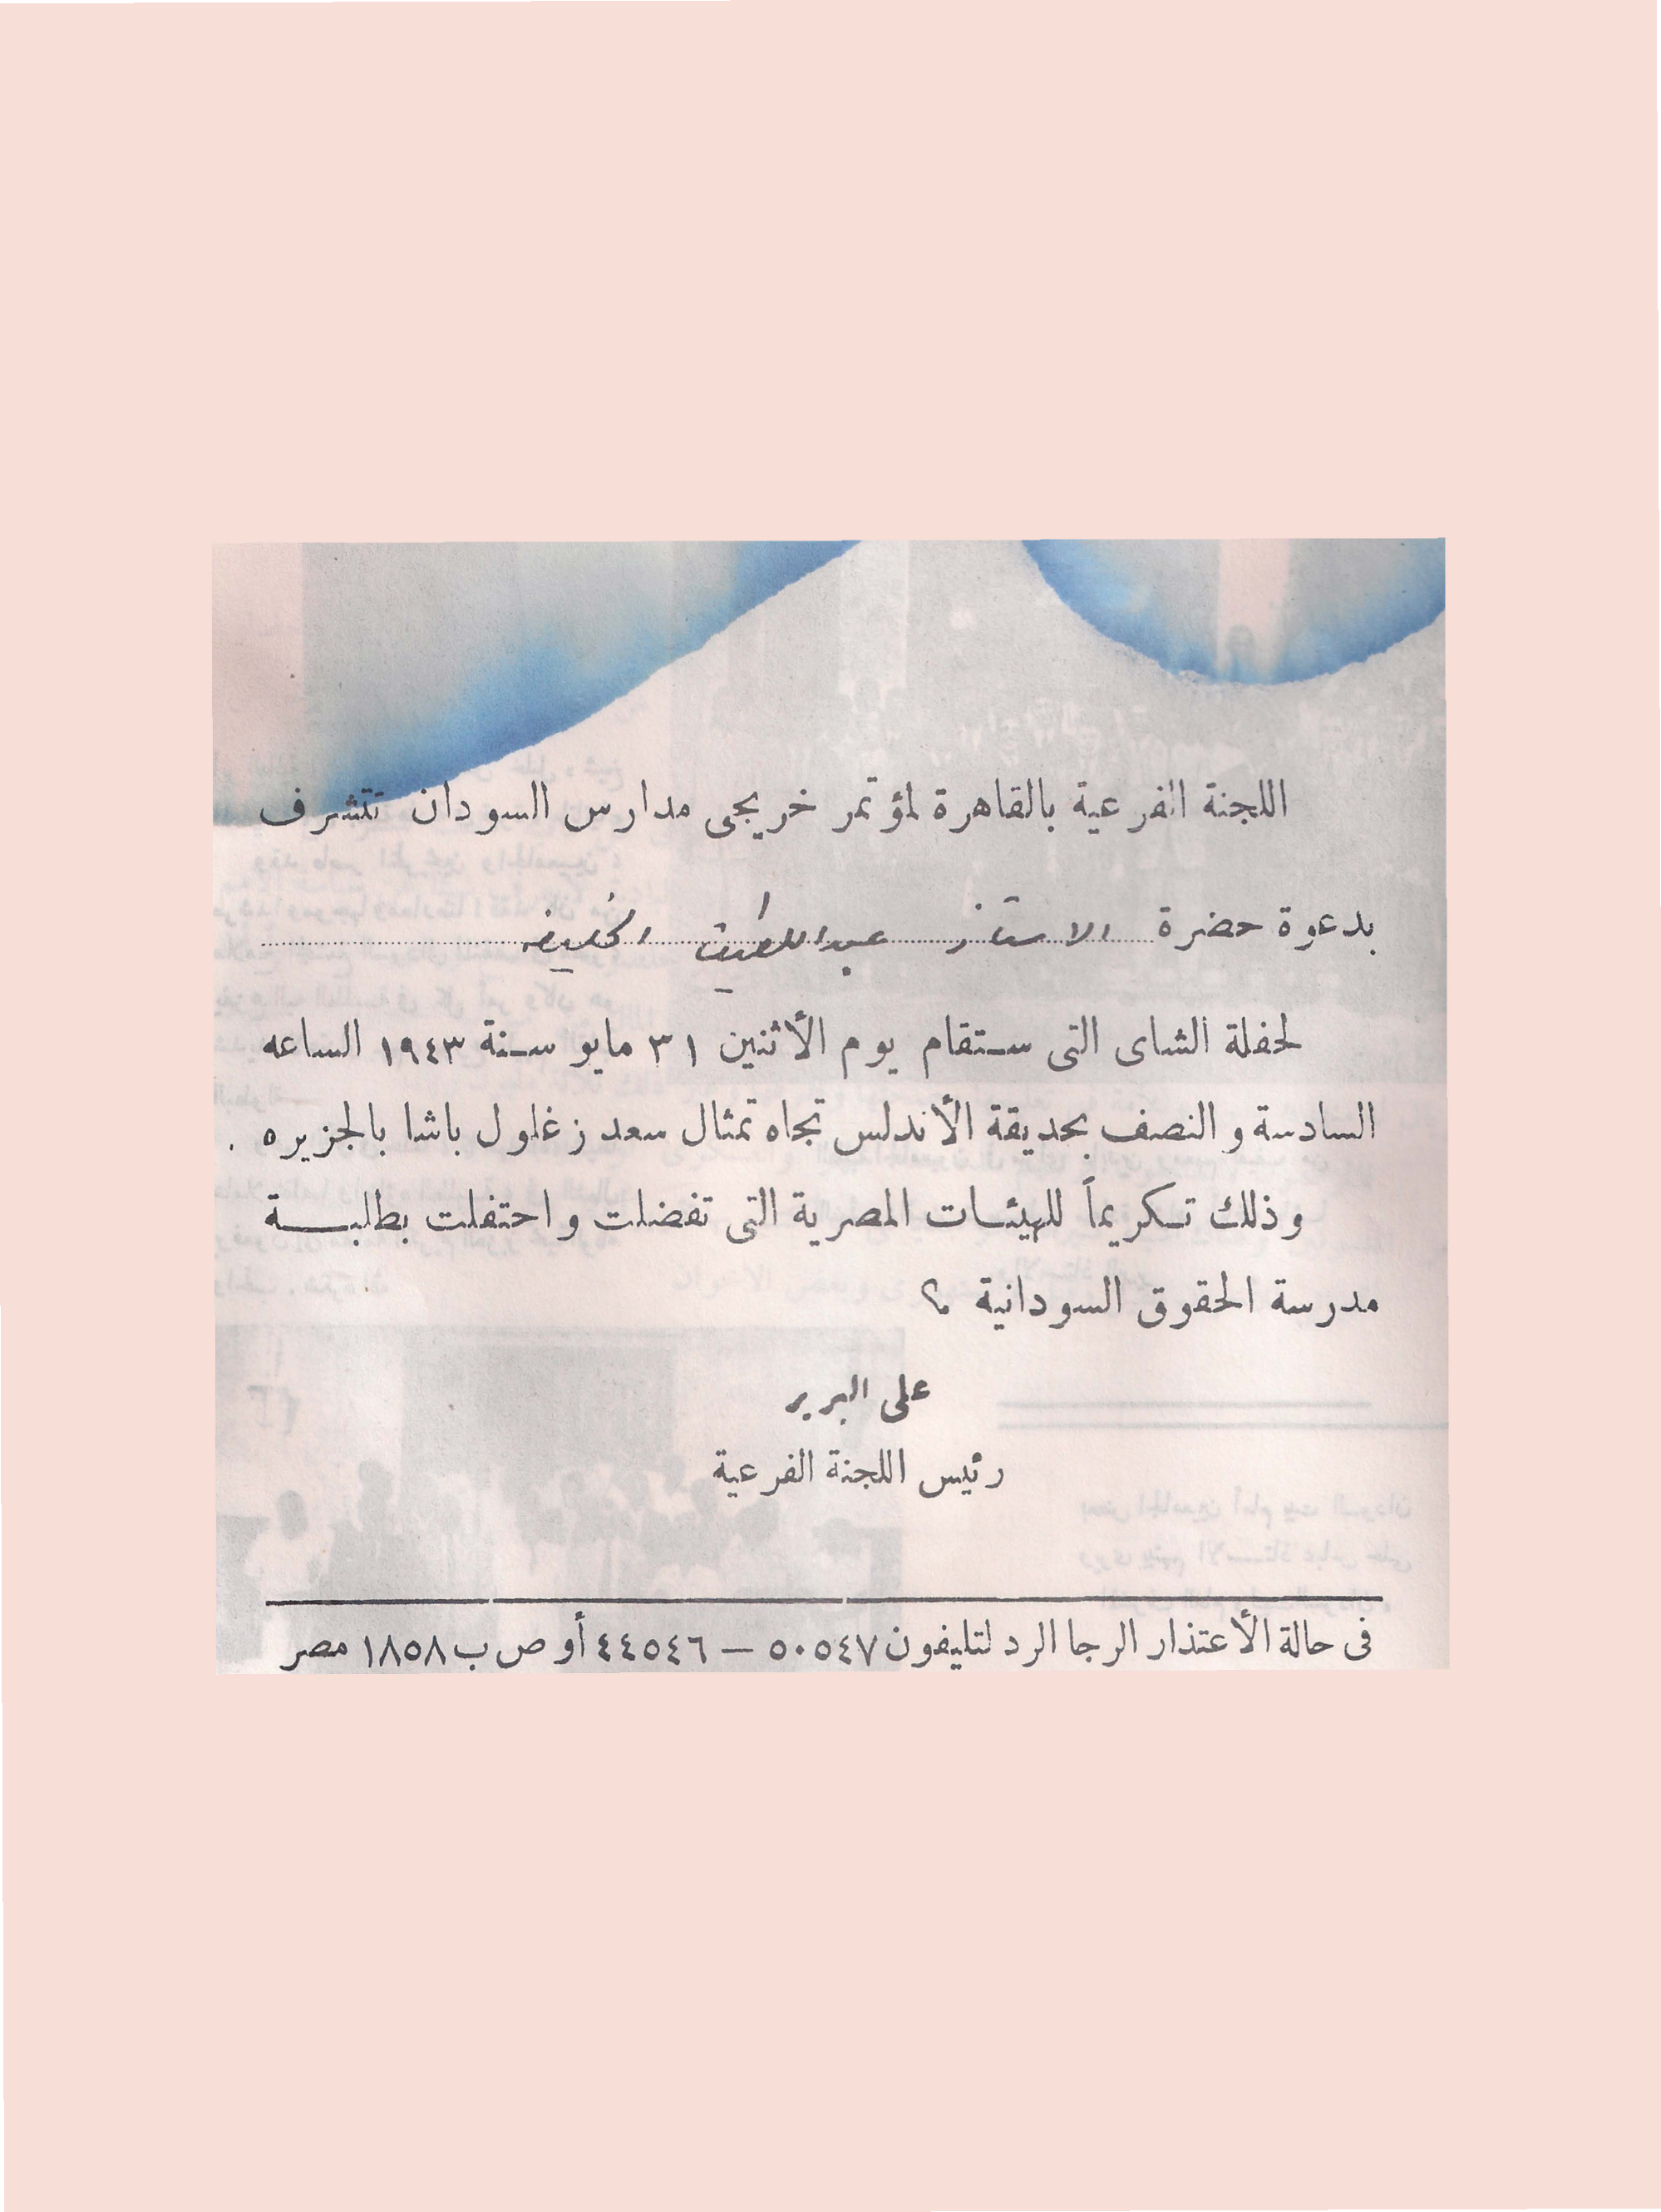 اللجنة الفرعية بالقاهرة لمؤتمر خريجى مدارس السودان تتشرف
بدعوة حضرة الاستاذ عبد اللطيف الخليفه
لحفلة الشاى التى ستقام يوم الأثنين ٣١ مايو سنة ١٩٤٣ الساعه
السادسة والنصف بحديقة الأندلس تجاه تمثال سعد زغلول باشا بالجزيره .
وذلك تكريماً للهيئات المصرية التى تفضلت واحتفلت بطلبة
مدرسة الحقوق السودانية
على البرير
رئيس اللجنة الفرعية
فى حالة الأعتذار الرجا الرد لتليفون ٥٠٥٤٧ — ٤٤٥٤٦ أو ص ب ١٨٥٨ مصر